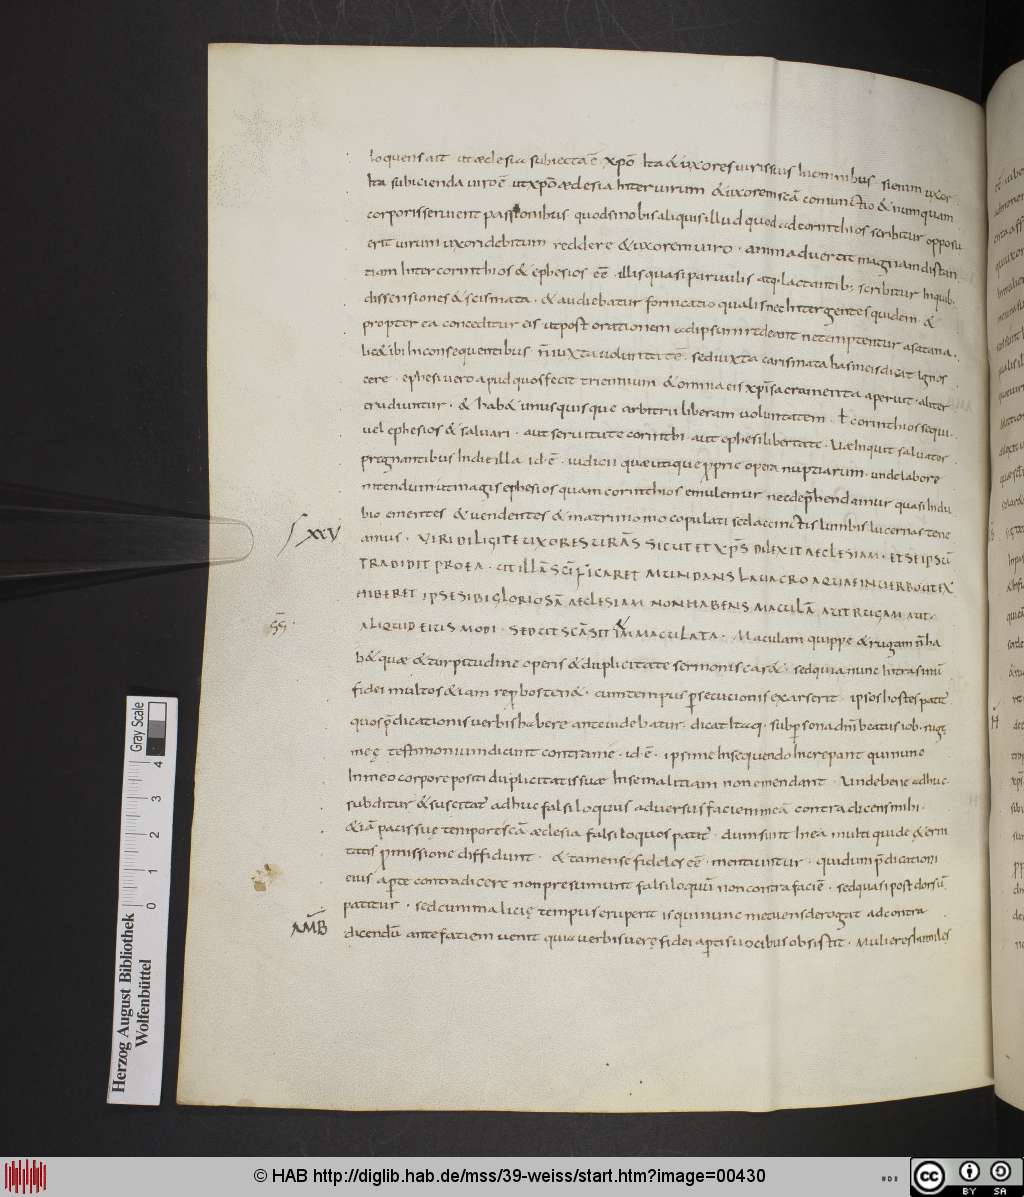 loquens ait ut æclesia subiecta ē xpō Ita & uxores uiris suis In omnibus si enim uxor
Ita subicienda uiro ē ut xpō æclesia Inter uirum & uxorem scā coniunctio & numquam
corporis seruient passionibus quod si nobis aliquis illud quod ad corinthios scribitur opposu
erit uirum uxori debitum reddere & uxorem uiro · animaduertit magnam distan
tiam Inter corinthios & ephesios eē · illis quasi paruulis atq· lactantib; scribitur In quib;
dissensiones & scismata · & audiebatur fornicatio qualis nec Inter gentes quidem · &
propter ea conceditur eis ut post orationem ad ipsum redeant ne temptentur a satana ·
lic& ibi In consequentibus n̄ iuxta uoluntatē · sed iuxta carismata has meis dicat Ignos
cere · ephesi uero apud quos fecit triennium & omnia eis xpī sacramenta aperuit · aliter
erudiuntur · & hab& unusquisque arbitrii liberam uoluntatem · ł corinthios sequi ·
uel ephesios & saluari · aut seruitute corinthi · aut ephesi libertate · Uæ Inquit saluator
pregnantibus In die illa · id · ē · iudicii quæ utique propriæ opera nuptiarum · unde labore
nitendum ut magis ephesios quam corinthios emulemur nec dep̄hendamur quasi In dilu
bio ementes & uendentes & matrimonio copulati sed accinctis lumbis lucernas tene
ſ xxv
amus · VIRI DILIGITE UXORES UR̄AS SICUT ET XP̄S DILEXIT AECLESIAM · ET SEIPSŪ
TRADIDIT PRO EA · UT ILLĀ SC̄IFICARET MUNDANS LAUACRO AQUAE IN UERBO UT EX
HIBERET IPSE SIBI GLORIOSĀ AECLESIAM NON HABENS MACULĀ AUT RUGAM AUT ·
ALIQUID EIUS MODI · SED UT SIT SC̄A ET IMMACULATA · Maculam quippe & rugam n̄ ha
b& quæ & turpitudine operis & duplicitate sermonis car& · sed quia nunc Intra sinū
fidei multos & iam reprobos ten& · cum tempus p̄secucionis exarserit · ipsos hostes patit̄
quos p̄dicationis uerbis habere ante uidebatur · dicat Itaq· sub p̄sona dn̄i beatus iob · rugę
meę testimonium dicunt contra me · id · ē · ipsi me Insequendo Increpant qui nunc
In meo corpore positi duplicitatis suæ In se malitiam non emendant · Unde bene adhuc
subditur & suscitat̄ adhuc falsiloquus aduersus faciem meā contradicens mihi ·
& iā pacis sue tempore scā æclesia falsiloquos patit̄ · dum sunt In ea multi qui de ęterni
tatis p̄missione diffidunt · & tamen se fideles eē · mentiuntur · qui dum p̄dicationi
eius aperte contradicere non presumunt falsiloquū non contra faciē · sed quasi post dorsū
patitur · sed cum malicię tempus eruperit is qui nunc metuens derogat ad contra
AM̄B
dicendū ante faciem uenit quia uerbis uerę fidei apertis uocibus obsistit · Mulieres
Herzog August Bibliothek
Wolfenbüttel
0 1 2 3 4
Gray Scale
© HAB http://diglib.hab.de/mss/39-weiss/start.htm?image=00430
cc
BY SA